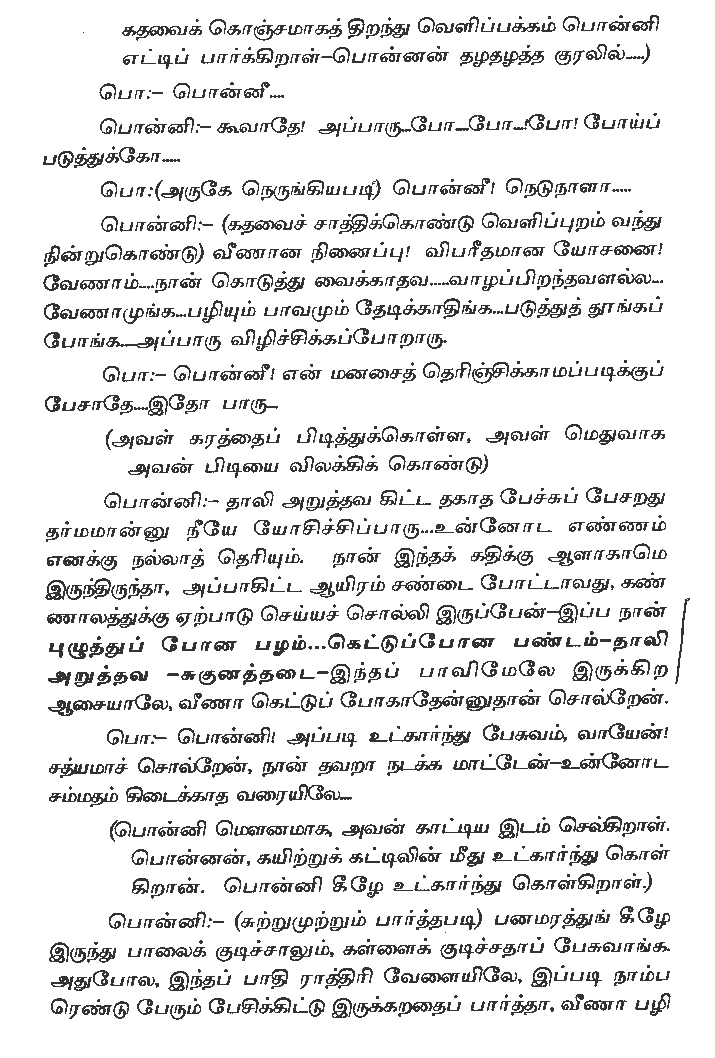 கதவைக் கொஞ்சமாகத் திறந்து வெளிப்பக்கம் பொன்னி
எட்டிப் பார்க்கிறாள்–பொன்னன் தழதழத்த குரலில்....)
பொ:– பொன்னீ....
பொன்னி:– கூவாதே! அப்பாரு...போ....போ...!போ! போய்ப்
படுத்துக்கோ.....
பொ:(அருகே நெருங்கியபடி) பொன்னீ! நெடுநாளா.....
பொன்னி:– (கதவைச் சாத்திக்கொண்டு வெளிப்புறம் வந்து
நின்றுகொண்டு) வீணான நினைப்பு! விபரீதமான யோசனை!
வேணாம்....நான் கொடுத்து வைக்காதவ.....வாழப்பிறந்தவளல்ல...
வேணாமுங்க...பழியும் பாவமும் தேடிக்காதிங்க...படுத்துத் தூங்கப்
போங்க....அப்பாரு விழிச்சிக்கப்போறாரு.
பொ:– பொன்னீ! என் மனசைத் தெரிஞ்சிக்காமப்படிக்குப்
பேசாதே....இதோ பாரு...
(அவள் கரத்தைப் பிடித்துக்கொள்ள, அவள் மெதுவாக
அவன் பிடியை விலக்கிக் கொண்டு)
பொன்னி:– தாலி அறுத்தவ கிட்ட தகாத பேச்சுப் பேசறது
தர்மமான்னு நீயே யோசிச்சிப்பாரு...உன்னோட எண்ணம்
எனக்கு நல்லாத் தெரியும். நான் இந்தக் கதிக்கு ஆளாகாமெ
இருந்திருந்தா, அப்பாகிட்ட ஆயிரம் சண்டை போட்டாவது, கண்
ணாலத்துக்கு ஏற்பாடு செய்யச் சொல்லி இருப்பேன்–இப்ப நான்
புழுத்துப் போன பழம்...கெட்டுப்போன பண்டம்–தாலி
அறுத்தவ –சுகுனத்தடை–இந்தப் பாவிமேலே இருக்கிற
ஆசையாலே, வீணா கெட்டுப் போகாதேன்னுதான் சொல்றேன்.
பொ:– பொன்னி! அப்படி உட்கார்ந்து பேசுவம், வாயேன்!
சத்யமாச் சொல்றேன், நான் தவறா நடக்க மாட்டேன்–உன்னோட
சம்மதம் கிடைக்காத வரையிலே...
(பொன்னி மௌனமாக, அவன் காட்டிய இடம் செல்கிறாள்.
பொன்னன், கயிற்றுக் கட்டிலின் மீது உட்கார்ந்து கொள்
கிறான். பொன்னி கீழே உட்கார்ந்து கொள்கிறாள்.)
பொன்னி:– (சுற்றுமுற்றும் பார்த்தபடி) பனமரத்துங் கீழே
இருந்து பாலைக் குடிச்சாலும், கள்ளைக் குடிச்சதாப் பேசுவாங்க.
அதுபோல, இந்தப் பாதி ராத்திரி வேளையிலே, இப்படி நாம்ப
ரெண்டு பேரும் பேசிக்கிட்டு இருக்கறதைப் பார்த்தா, வீணா பழி